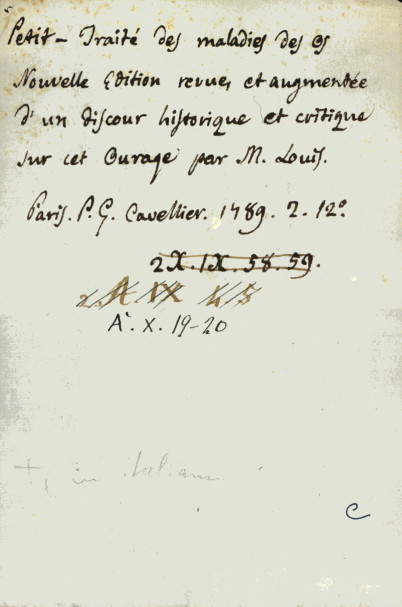 Petit - Traité des maladies des os
Nouvelle Edition revue, et augmentée
d'un discour historique et critique
sur cet Ourage par M. Louis.
Paris. P. G. Cavellier. 1789. 2. 12°.
2X.IX.58.59.
A. X. 19-20
in italiano
C